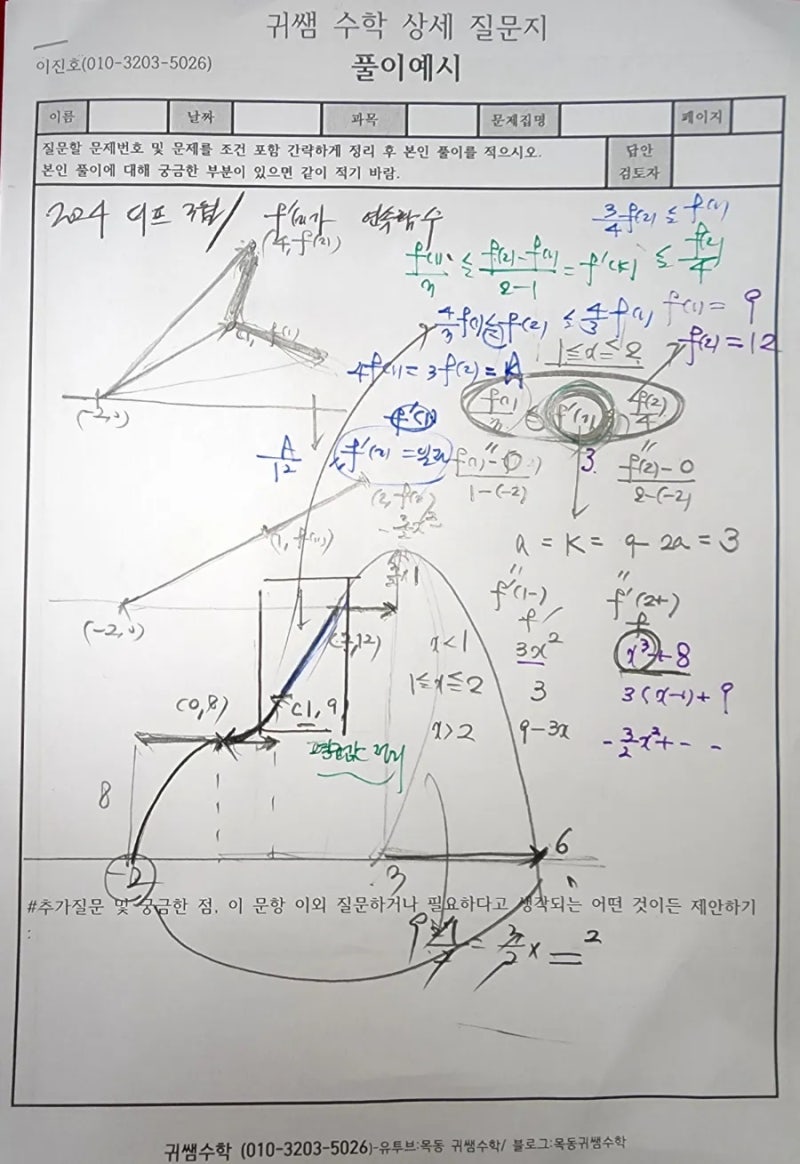 귀쌤 수학 상세 질문지
이진호(010-3203-5026)
풀이예시
이름 날짜 과목 문제집명 페이지
질문할 문제번호 및 문제를 조건 포함 간략하게 정리 후 본인 풀이를 적으시오.
본인 풀이에 대해 궁금한 부분이 있으면 같이 적기 바람.
답안
검토자
2024 더프 3월/ f'(x)가 연속함수
3/4 f(2) ≤ f(1)
f(1)/3 ≤ (f(2)-f(1))/(2-1) = f'(k) ≤ f(2)/4
4/3 f(1) ≤ f(2) ≤ 4/3 f(1)
f(1) = 9
f(2) = 12
4f(1) = 3f(2) = A
1≤x≤2
(-2,0)
A/12
f(1)/3 f'(x) f(2)/4
3
(f(1)-0)/(1-(-2)) (f(2)-0)/(2-(-2))
(1, f(1))
(-2,0)
a = k = 9-2a = 3
f'(1-) f'(2+)
f' f
x<1 3x² x³+8
1≤x≤2 3 3(x-1)+9
x>2 9-3x -3/2x²+- -
(0,8)
(1,9)
(2,12)
평균값 정리
8
-2 3 6
#추가질문 및 궁금한 점, 이 문항 이외 질문하거나 필요하다고 생각되는 어떤 것이든 제안하기
:
= 3/2 x 2
귀쌤수학 (010-3203-5026)-유투브:목동 귀쌤수학/ 블로그:목동귀쌤수학